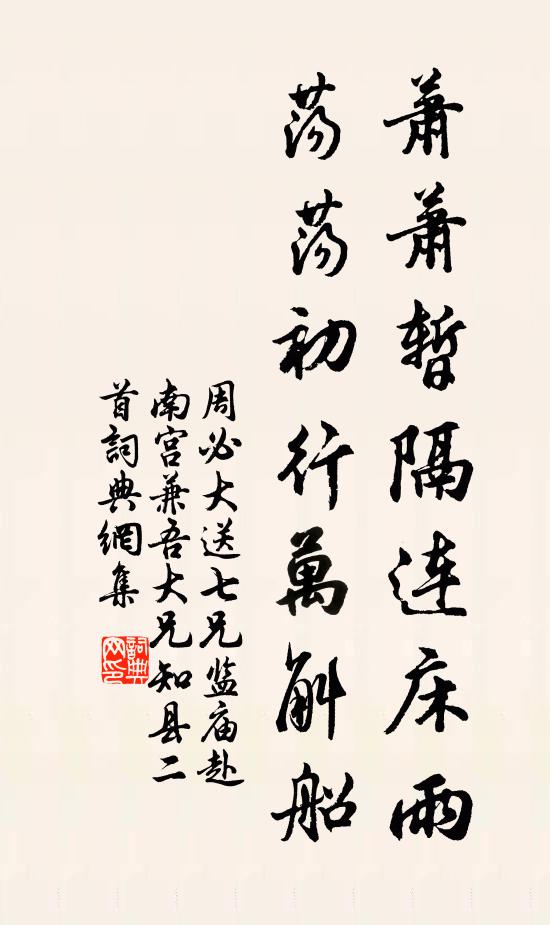 蕭蕭暫隔连床雨
荡荡初行萬斛船
周必大送七兄监庙赴
南宫兼吾大兄知县二
首詞典網集
詞典网印